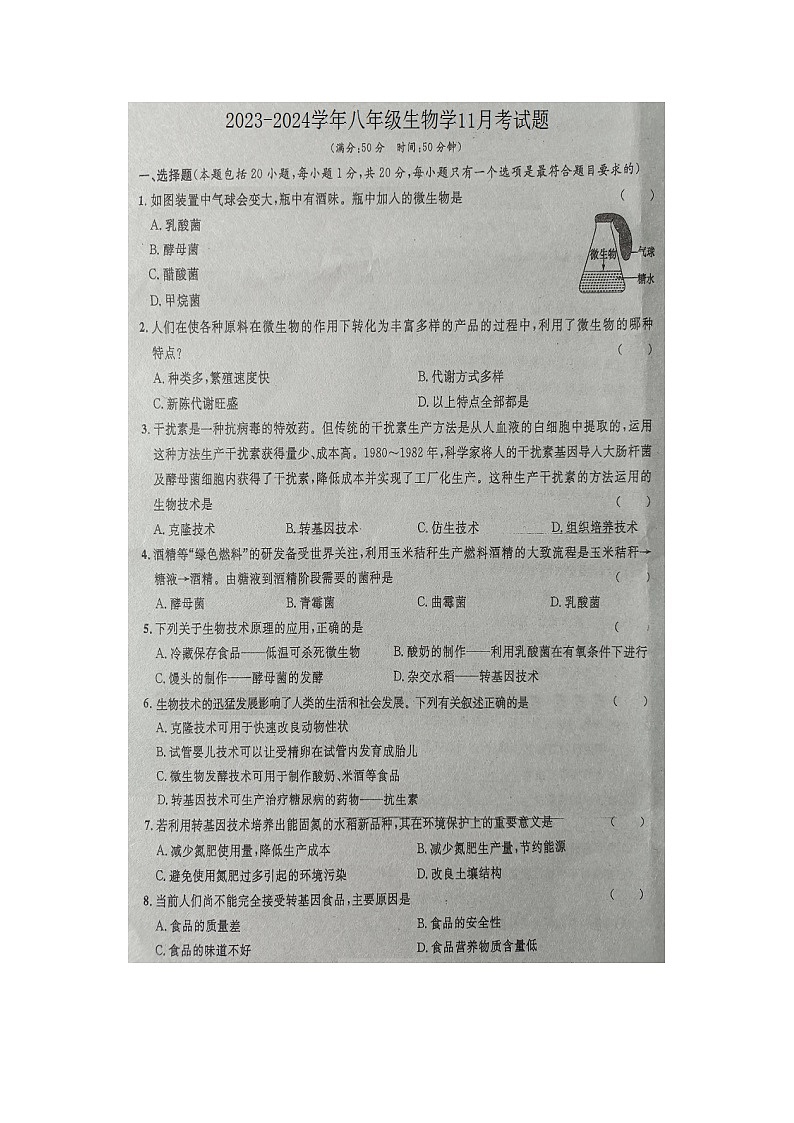 2023-2024学年八年级生物学11月考试题
(满分:50分 时间:50分钟)
一、选择题(本题包括20小题,每小题1分,共20分,每小题只有一个选项是最符合题目要求的)
1. 如图装置中气球会变大,瓶中有酒味。瓶中加人的微生物是 ( )
A. 乳酸菌
B. 酵母菌
C. 醋酸菌
D. 甲烷菌
微生物
气球
糖水
2. 人们在使各种原料在微生物的作用下转化为丰富多样的产品的过程中,利用了微生物的哪种
特点? ( )
A. 种类多,繁殖速度快 B. 代谢方式多样
C. 新陈代谢旺盛 D. 以上特点全部都是
3. 干扰素是一种抗病毒的特效药。但传统的干扰素生产方法是从人血液的白细胞中提取的,运用
这种方法生产干扰素获得量少、成本高。1980～1982年,科学家将人的干扰素基因导人大肠杆菌
及酵母菌细胞内获得了干扰素,降低成本并实现了工厂化生产。这种生产干扰素的方法运用的
生物技术是 ( )
A. 克隆技术 B. 转基因技术 C. 仿生技术 D. 组织培养技术
4. 酒精等“绿色燃料”的研发备受世界关注,利用玉米秸秆生产燃料酒精的大致流程是玉米秸秆→
糖液→酒精。由糖液到酒精阶段需要的菌种是 ( )
A. 酵母菌 B. 青霉菌 C. 曲霉菌 D. 乳酸菌
5. 下列关于生物技术原理的应用,正确的是 (
A. 冷藏保存食品——低温可杀死微生物 B. 酸奶的制作——利用乳酸菌在有氧条件下进行
C. 馒头的制作——酵母菌的发酵 D. 杂交水稻——转基因技术
6. 生物技术的迅猛发展影响了人类的生活和社会发展。下列有关叙述正确的是 ( )
A. 克隆技术可用于快速改良动物性状
B. 试管婴儿技术可以让受精卵在试管内发育成胎儿
C. 微生物发酵技术可用于制作酸奶、米酒等食品
D. 转基因技术可生产治疗糖尿病的药物——抗生素
7. 若利用转基因技术培养出能固氮的水稻新品种,其在环境保护上的重要意义是 ( )
A. 减少氮肥使用量,降低生产成本 B. 减少氮肥生产量,节约能源
C. 避免使用氮肥过多引起的环境污染 D. 改良土壤结构
8. 当前人们尚不能完全接受转基因食品,主要原因是 ( )
A. 食品的质量差 B. 食品的安全性
C. 食品的味道不好 D. 食品营养物质含量低